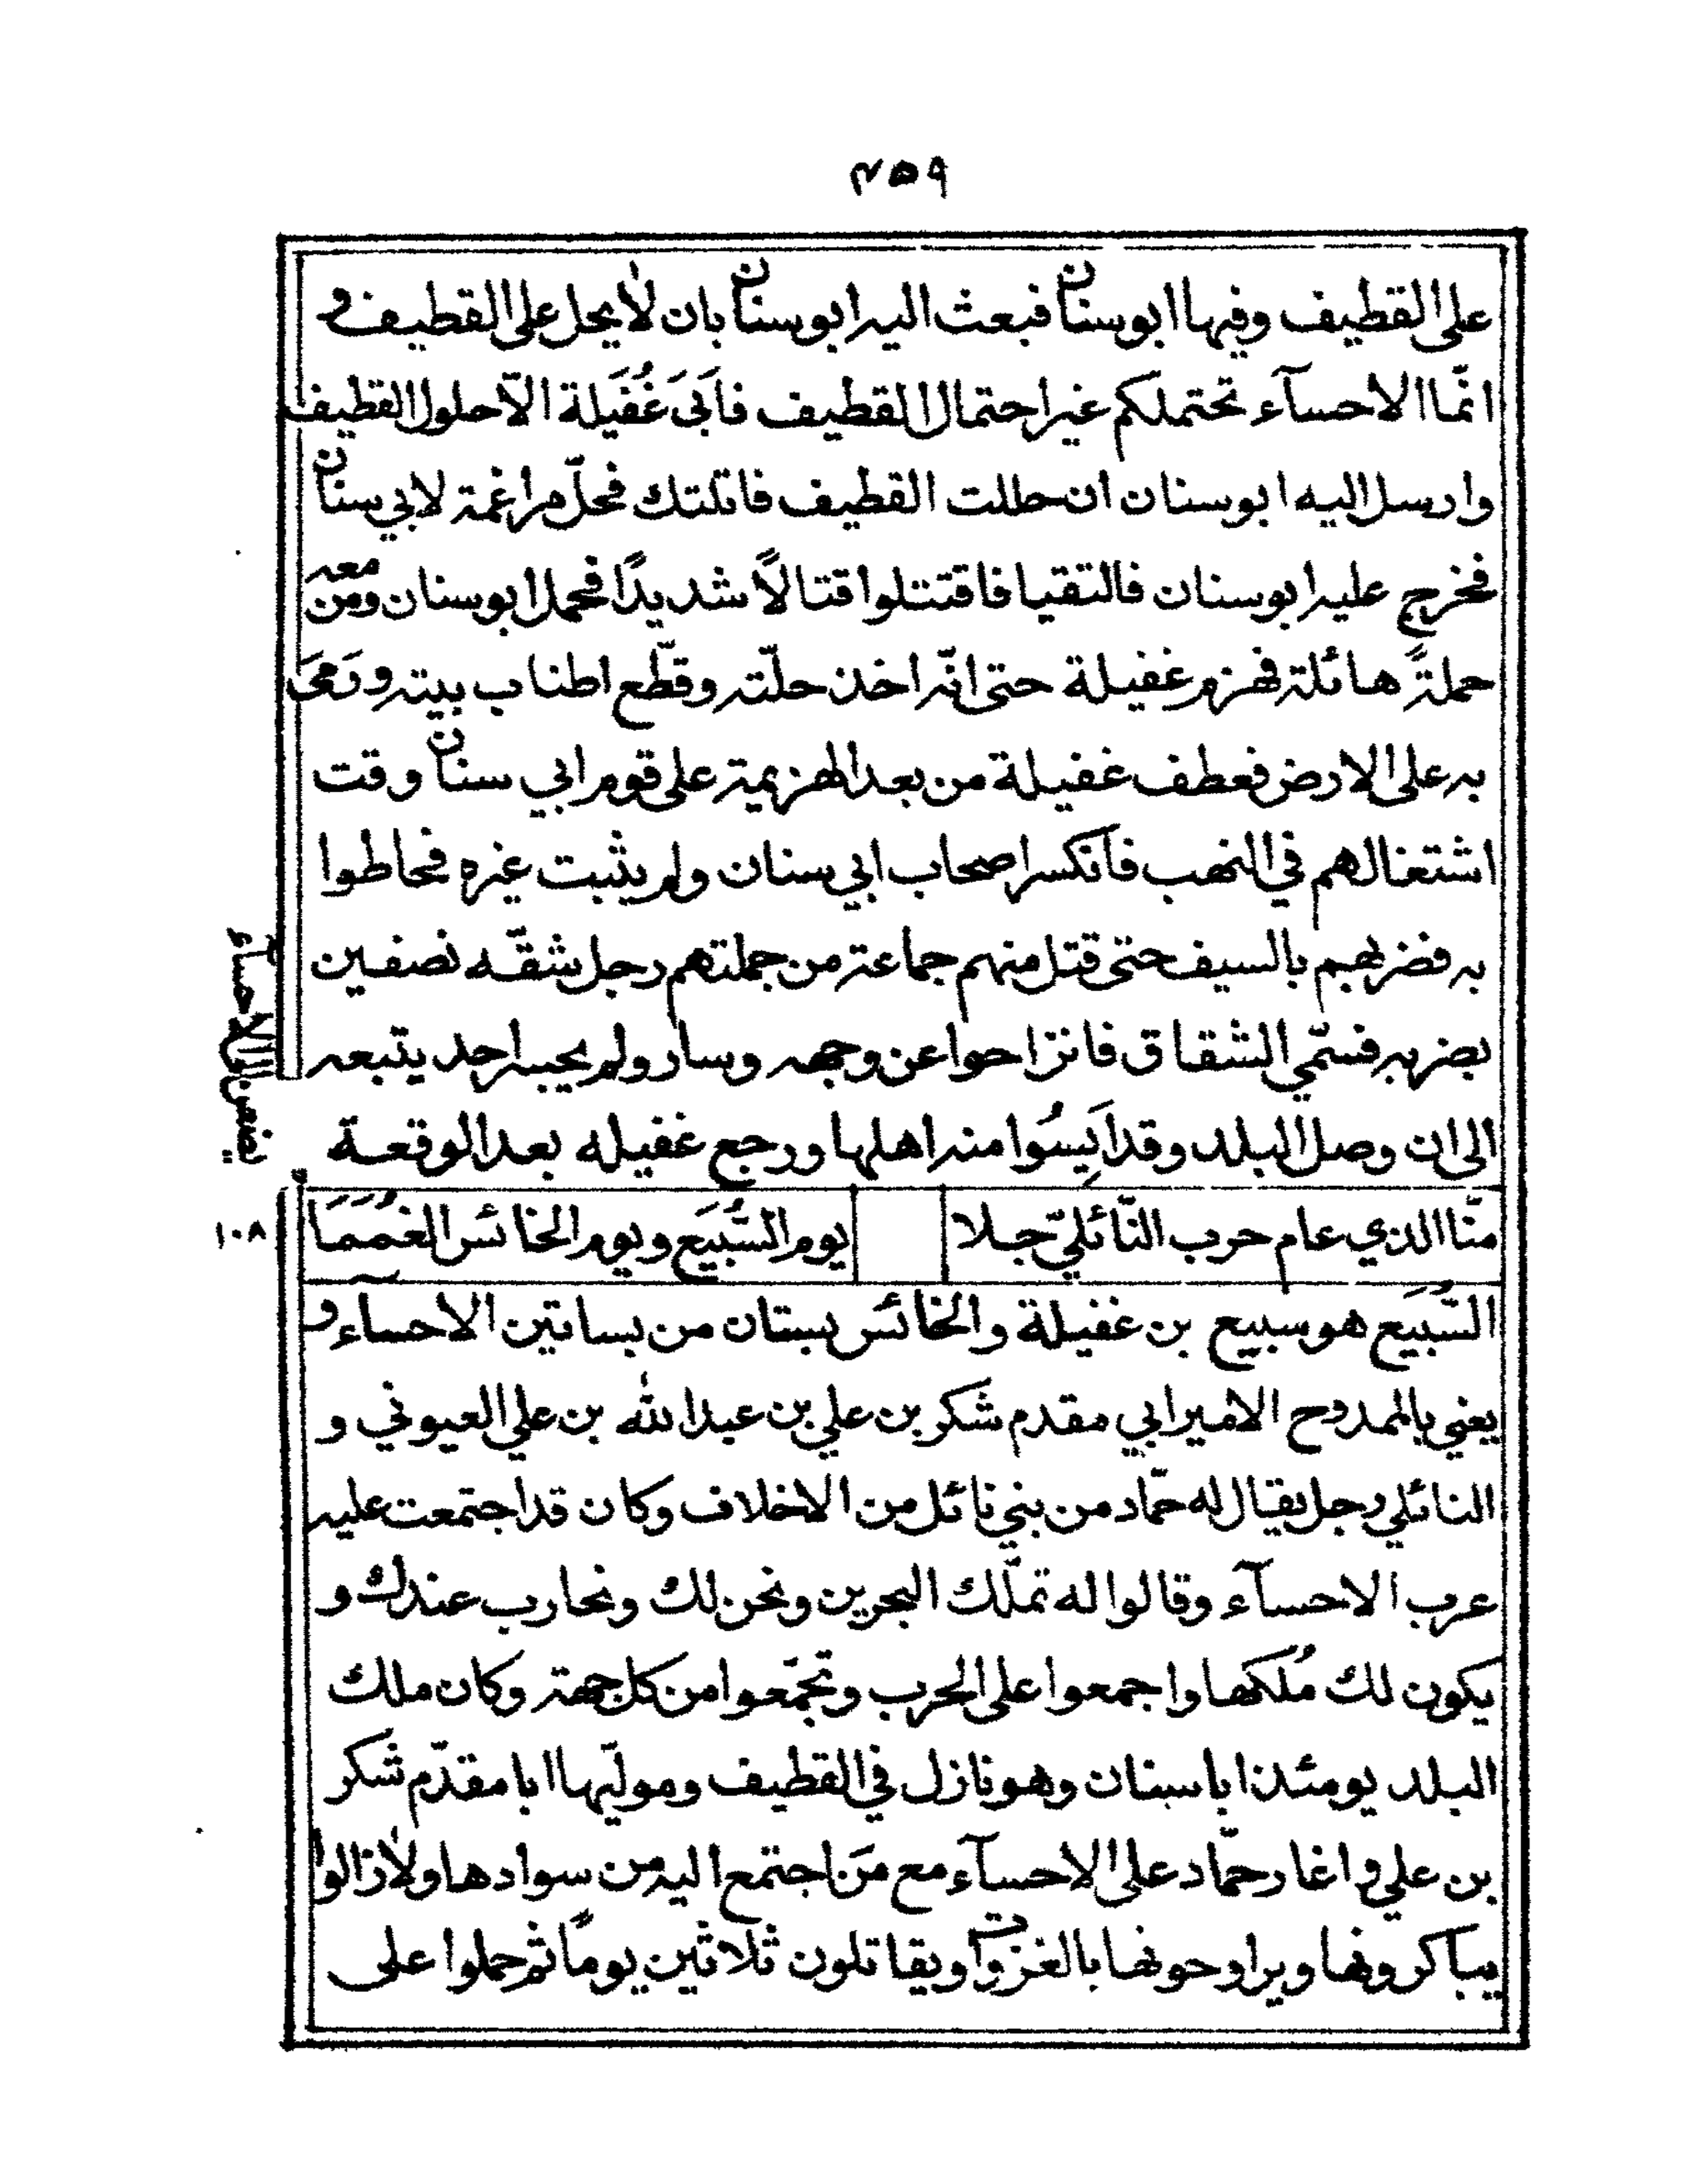 ٤٥٩
على القطيف وفيها ابو سنان فبعث اليه ابو سنان بان لا يحل على القطيف و
انّما الاحسآء تحتملكم غير احتمال القطيف فاَبىَ غُفَيلة الاّ حلول القطيف
وارسل اليه ابو سنان ان حللت القطيف قاتلتك فحلّ مراغمة لابي سنان
فخرج عليه ابو سنان فالتقيا فاقتتلوا قتالاً شديدًا فحمل ابو سنان ومن معه
حملةً هائلة فهزم غفيلة حتى انّه اخذ حلّته وقطّع اطناب بيته ورَمىَ
به على الارض فعطف غفيلة من بعد الهزيمة على قوم ابي سنان وقت
اشتغالهم في النهب فانكسر اصحاب ابي سنان ولم يثبت غيره فحاطوا
به فضربهم بالسيف حتى قتل منهم جماعة من جملتهم رجل شقّه نصفين
بضربه فسمّي الشقاق فانزاحوا عن وجهه وسار ولم يجبه احد يتبعه
الى ان وصل البلد وقد اَيِسُوا منه اهلها ورجع غفيله بعد الوقعة
الى الاحسآء
منّا الذي عام حرب النّائليّ جلا يوم السُّبَيَع ويوم الخائس الغُمَمَا
١٠٨
السُّبَيَع هو سبيع بن غفيلة والخائس بستان من بساتين الاحسآء و
يعني بالممدوح الامير ابي مقدم شكر بن علي بن عبد الله بن علي العيوني و
النائلي رجل يقال له حمّاد من بني نائل من الاخلاف وكان قد اجتمعت عليه
عرب الاحسآء وقالوا له تملّك البحرين ونحن لك ونحارب عندك و
يكون لك مُلكها واجمعوا على الحرب وتجمّعوا من كل جهة وكان ملك
البلد يومئذ ابا سنان وهو نازل في القطيف ومولّيها ابا مقدّم شكر
بن علي واغار حمّاد على الاحسآء مع مَن اجتمع اليه من سوادها ولازالوا
يباكرونها ويراوحونها بالغزوات ويقاتلون ثلاثين يومًا ثم حملوا على